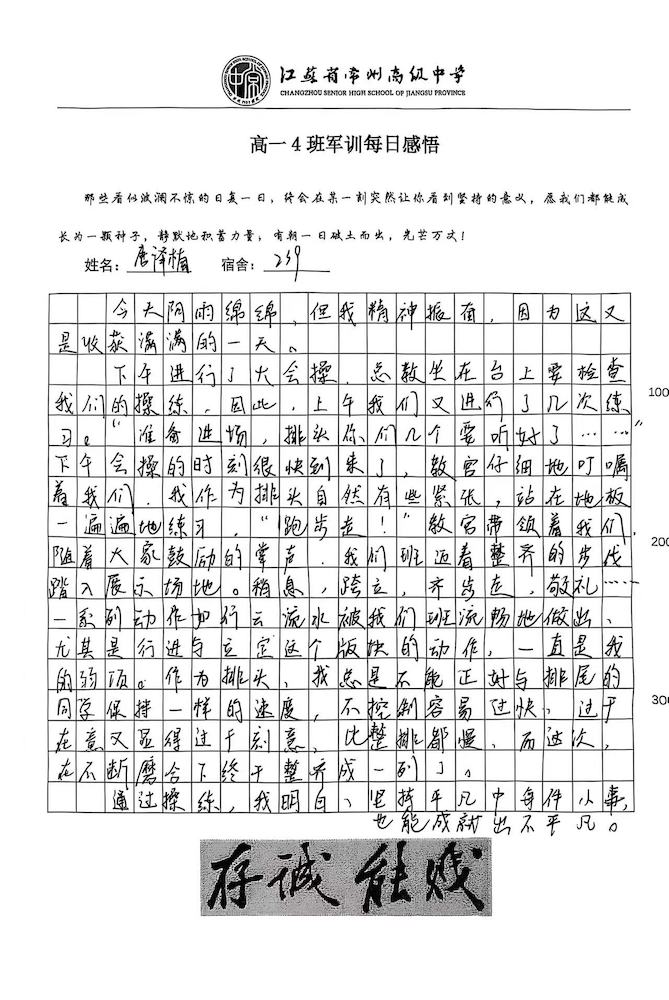 江苏省常州高级中学
CHANGZHOU SENIOR HIGH SCHOOL OF JIANGSU PROVINCE
高一4班军训每日感悟
那些看似波澜不惊的日复一日，终会在某一刻突然让你看到坚持的意义，愿我们都能成
长为一颗种子，静默地积蓄力量，有朝一日破土而出，光芒万丈！
姓名：唐译楠 宿舍：239
今天阴雨绵绵，但我精神振奋，因为这又
是收获满满的一天。
下午进行了大会操，总教坐在台上要检查
我们的操练，因此，上午我们又进行了几次练
100
习。“准备进场，排头你们几个要听好了……”
下午会操的时刻很快到来了，教官仔细地叮嘱
着我们，我作为排头自然有些紧张，站在地板
一遍遍地练习，“跑步走！”教官带领着我们，
200
随着大家鼓励的掌声，我们班迈着整齐的步伐
踏入展示场地。稍息，跨立，齐步走，敬礼……
一系列动作如行云流水被我们班流畅地做出、
尤其是行进与立定这个版块的动作，一直是我
的弱项。作为排头，我总是不能正好与排尾的
同学保持一样的速度，不控制容易过快，过于
300
在意又显得过于刻意，比整排都慢，而这次，
在不断磨合下终于整齐成一列了。
通过操练，我明白，坚持平凡中每件小事，
也能成就出不平凡。
存诚能贱